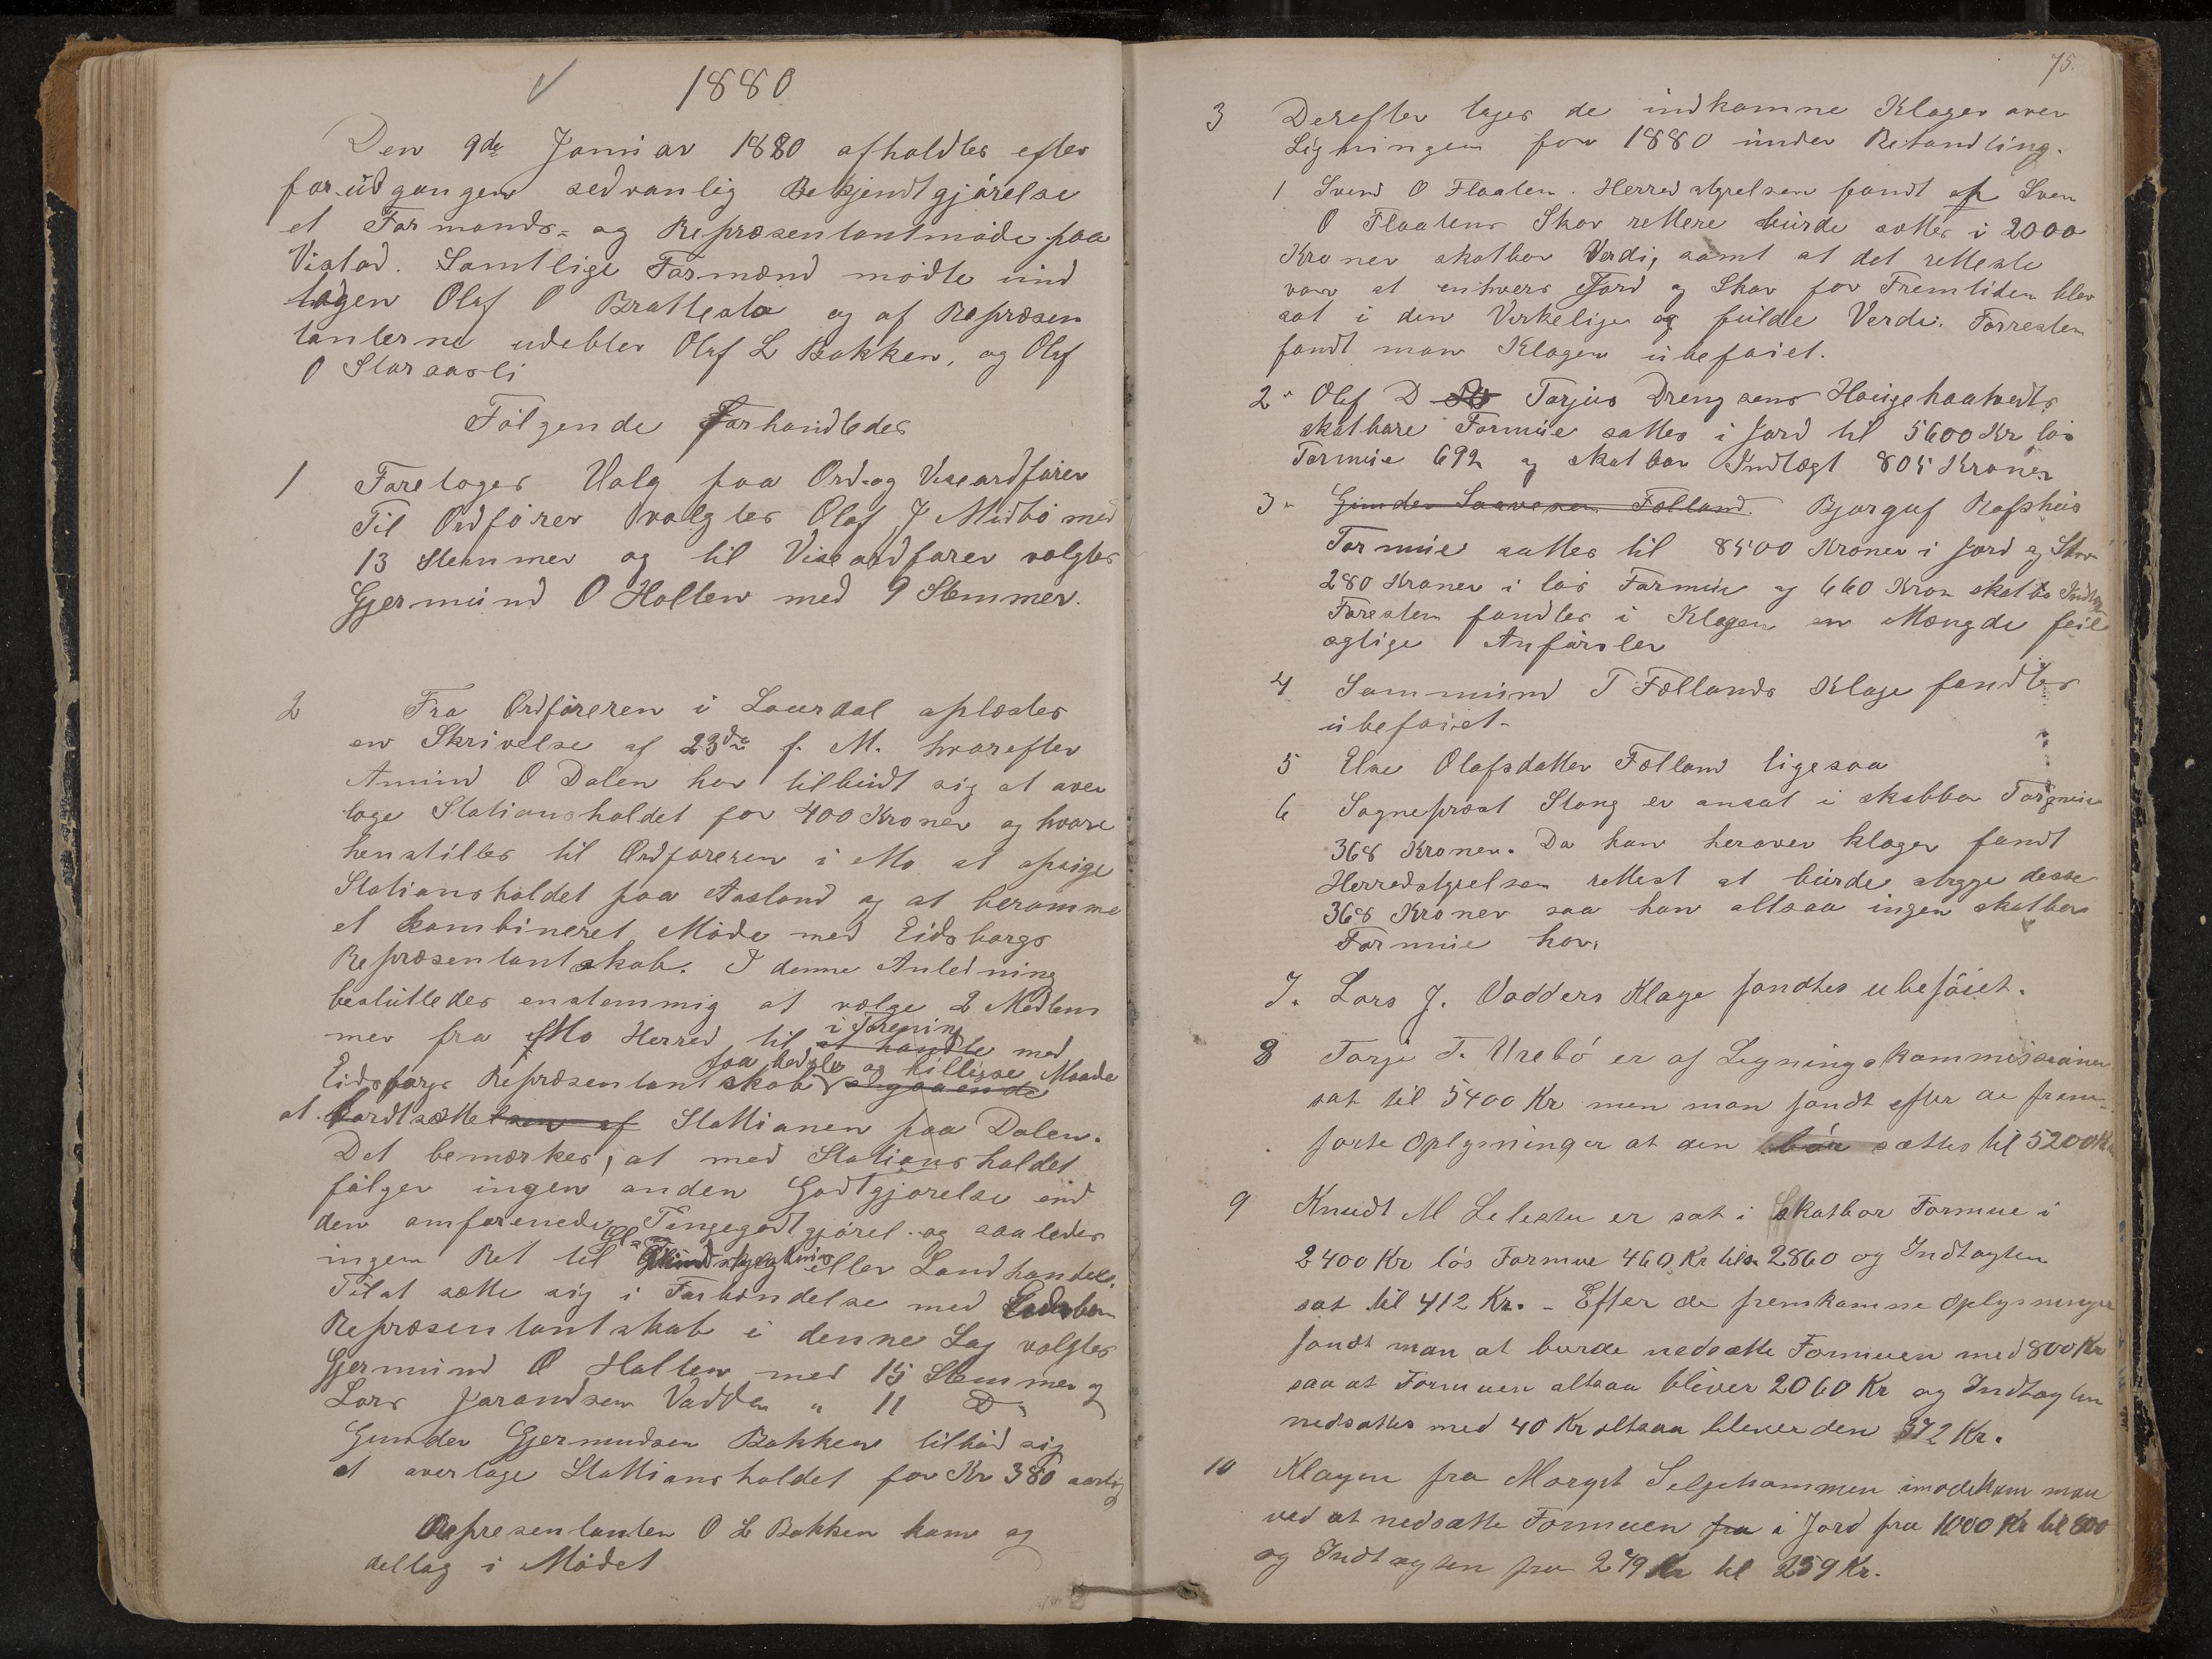 1880
Den 9de Januar 1880 afholdtes efter
forudgangen sedvanlig Bekjendtgjörelse
et Formands= og Repræsentantmöde paa
Vistad. Samtlige Formænd mödte und
tagen Olaf O Brattestå og af Repræsen
tanterne udeblev Olaf L Bakken, og Olaf
O Storaasli
Fölgende Forhandledes
1 Foretoges Valg paa Ord- og Viseordförer
Til Ordförer valgtes Olaf J Midbö med
13 Stemmer og til Viseordförer valgtes
Gjermund O Holten med 9 Stemmer.
2 Fra Ordföreren i Laurdal oplæstes
en Skrivelse af 23de f. M. hvorefter
Amund O Dalen har tilbudt sig at over
tage Stationsholdet for 400 Kroner og hvori
henstilles til Ordföreren i Mo at opsige
Stationsholdet paa Aasland og at beramme
et kombineret Möde med Eidsborgs
Repræsentantskab. I denne Anledning
besluttedes enstemmig at vælge 2 Medlem
mer fra Mo Herred til i Forening
at handle med
paa bedste og billigse Maade
Eidsborgs Repræsentantskab angaaende
at fordtsættelsen af Stattionen paa Dalen.
Det bemærkes, at med Stationsholdet
fölger ingen anden Godtgjörelse end
den omforenede Pengegodtgjörel. og saaledes
ingen Ret til Öl= eller Landhandel.
Til at sætte sig i Forbindelse med Eidsborg
Repræsentantskab i denne Sag valgtes
Gjermund O Holten med 15 Stemmer og
Lars Jarandsen Vadden " 11 D
Gunder Gjermundsen Bakken tilböd sig
at overtage Stattionsholdet for Kr 380 aarlig
Represenlanten O L Bakken kom og
deltog i Mödet
75.
3 Derefter toges de indkomne Klager over
Ligningen for 1880 under Behandling.
1 Svend O Flaaten. Herredstyrelsen fandt at Sven
O Flaatens Skov rettere burde sættes i 2000
Kroner skatbar Verdi, samt at det retteste
var at enhvers Jord og Skov for Fremtiden blev
sat i den Virkelige og fulde Verdi. Forresten
fandt man Klagen ubeföiet.
2 Olef D Torjus Drengsens Haugehaatvedts
skatbare Formue sattes i Jord til 5600 Kr lös
Formue 692 og skatbar Indtægt 805 Kroner
3 Gunder Saavesen Folland. Bjorguf Rafshus
Formue sattes til 8500 Kroner i Jord og Skov
280 Kroner i lös Formue og 660 Kron skatba Indtægt
Foresten fandtes i Klagen en Mængde feil
agtige Anförsler
4 Sammund T Follands Klage fandtes
ubeföiet.
5 Else Olafsdatter Folland ligesaa
6 Sogneprest Stang er ansat i skatbar Formue
368 Kroner. Da han herover klager fandt
Herredstyrelsen rettest at burde stryge desse
368 Kroner saa han altsaa ingen skatbar
Formue har.
7. Lars J. Vadders Klage fandtes ubeföiet.
8 Torje T. Urebö er af Ligningskommissionen
sat til 5400 Kr men man fandt efter de frem=
förte Oplysninger at den bör sættes til 5200 Kr
9 Knudt M Lelestu er sat i Skatbar Formue i
2400 Kr lös Formue 460 Kr tils. 2860 og Indtagten
sat til 412 Kr. - Efter de fremkomne Oplysninger
fandt man at burde nedsætte Formuen med 800 Kr
saa at Formuen altsaa bliver 2060 Kr og Indtagten
nedsattes med 40 Kr altsaa bliver den 372 Kr.
10 Klagen fra Margit Seljehammen imödekom man
ved at nedsætte Formuen fra i Jord fra 1000 Kr til 800
og Indtagten fra 279 Kr til 259 Kr.